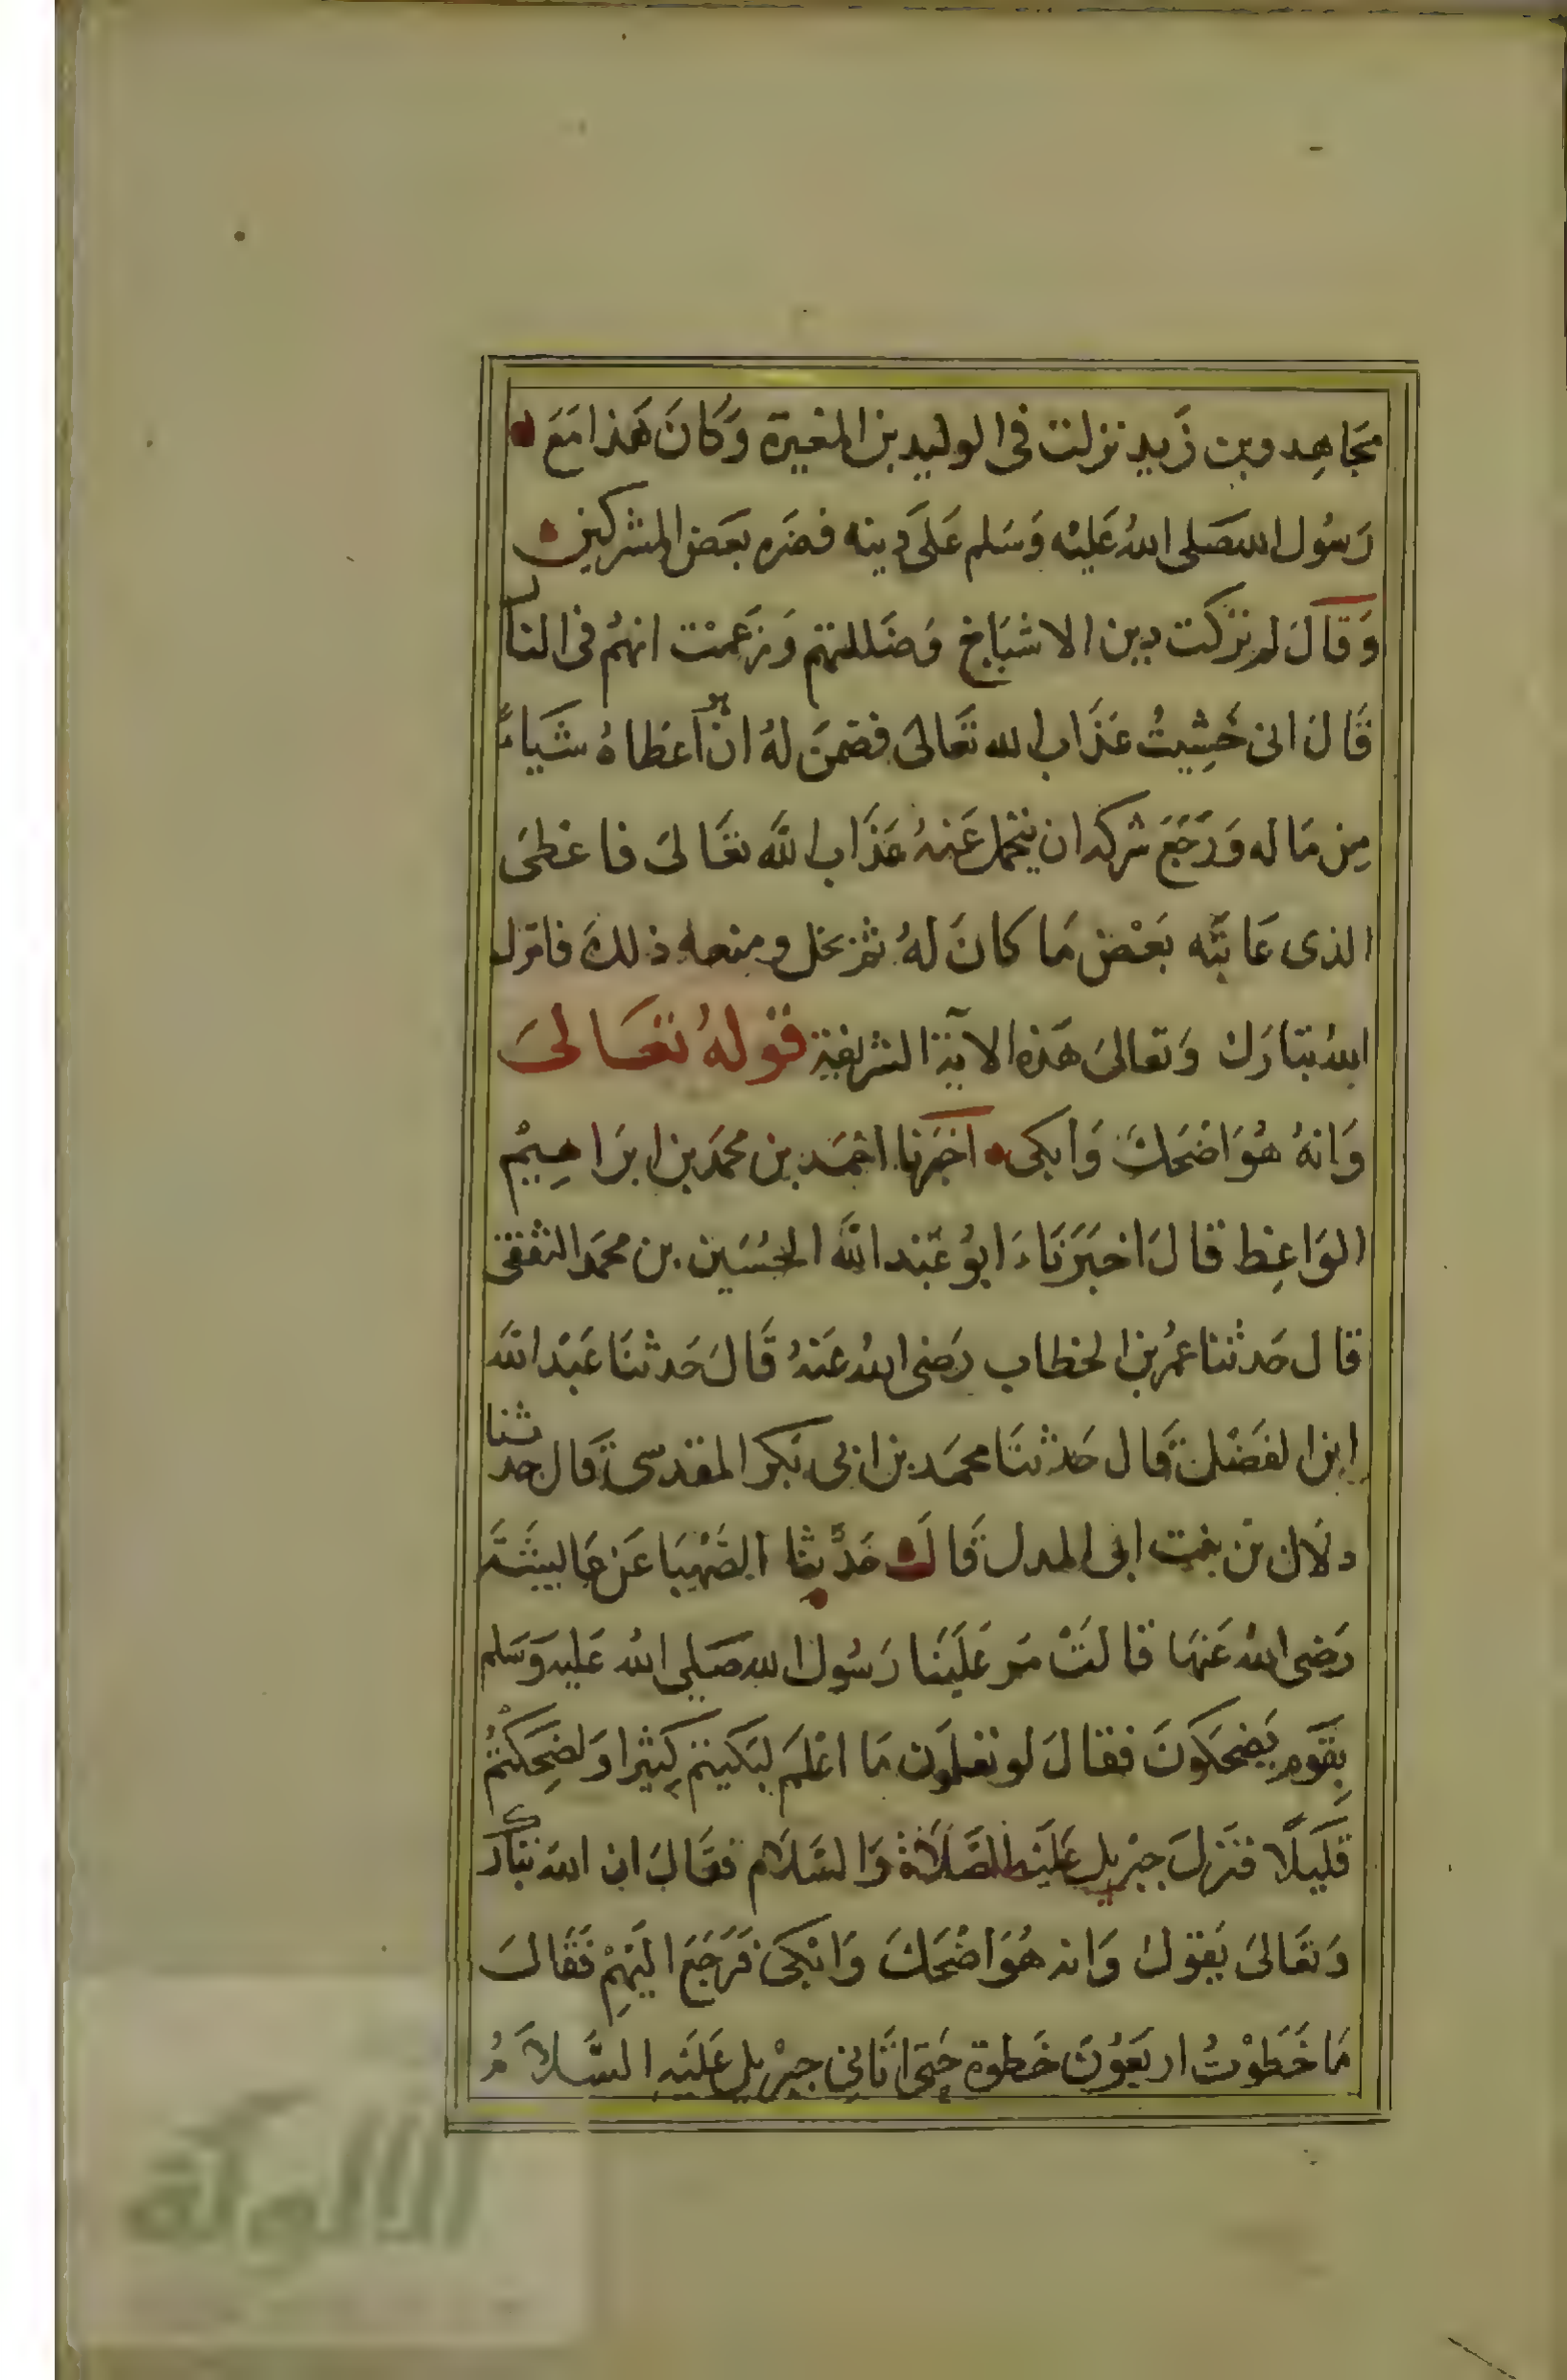 مجاهد وبن زيد نزلت فى الوليد بن المغيرة وكان هذا مع
رسول الله صلى الله عليه وسلم على دينه فضره بعض المشركين
وقال لم تركت دين الاشياخ وضللتهم وزعمت انهم فى النار
قال انى خشيت عذاب الله تعالى فضمن له ان هو اعطاه شياء
من ماله ورجع شركه ان يتحمل عنه عذاب الله تعالى فاعطى
الذى عاتبه بعض ما كان له ثم بخل ومنعه ذلك فانزل
الله تبارك وتعالى هذه الآية الشريفة قوله تعالى
وانه هو اضحك وابكى اخبرنا احمد بن محمد بن ابراهيم
الواعظ قال اخبرناء ابو عبد الله الحسين بن محمد الثقفى
قال حدثنا عمر بن الخطاب رضى الله عنه قال حدثنا عبد الله
ابن الفضل قال حدثنا محمد بن ابى بكر المقدسى قال حدثنا
دلال بن بنت ابى المدل قال حدثنا الصهبا عن عايشة
رضى الله عنها قالت مر علينا رسول الله صلى الله عليه وسلم
بقوم يضحكون فقال لو تعلمون ما اعلم لبكيتم كثيرا ولضحكتم
قليلا فنزل جبريل عليه الصلاة والسلام فقال ان الله تبارك
وتعالى يقول وانه هو اضحك وابكى فرجع اليهم فقال
ما خطوت اربعون خطوة حتى اتانى جبريل عليه السلام
الألوكة